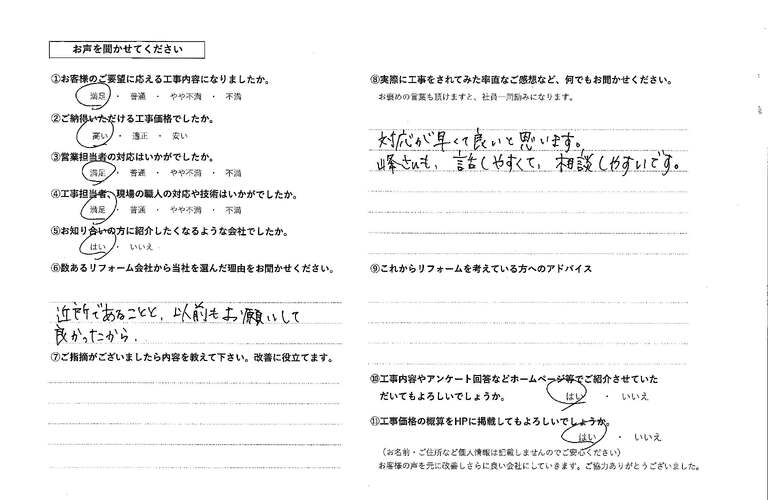 お声を聞かせてください
①お客様のご要望に応える工事内容になりましたか。
満足 ・ 普通 ・ やや不満 ・ 不満
②ご納得いただける工事価格でしたか。
高い ・ 適正 ・ 安い
③営業担当者の対応はいかがでしたか。
満足 ・ 普通 ・ やや不満 ・ 不満
④工事担当者、現場の職人の対応や技術はいかがでしたか。
満足 ・ 普通 ・ やや不満 ・ 不満
⑤お知り合いの方に紹介したくなるような会社でしたか。
はい ・ いいえ
⑥数あるリフォーム会社から当社を選んだ理由をお聞かせください。
近所であることと、以前もお願いして
良かったから。
⑦ご指摘がございましたら内容を教えて下さい。改善に役立てます。
⑧実際に工事をされてみた率直なご感想など、何でもお聞かせください。
お褒めの言葉も頂けますと、社員一同励みになります。
対応が早くて良いと思います。
峰さんも、話しやすくて、相談しやすいです。
⑨これからリフォームを考えている方へのアドバイス
⑩工事内容やアンケート回答などホームページ等でご紹介させていた
だいてもよろしいでしょうか。 はい ・ いいえ
⑪工事価格の概算をHPに掲載してもよろしいでしょうか。
はい ・ いいえ
（お名前・ご住所など個人情報は記載しませんのでご安心ください）
お客様の声を元に改善しさらに良い会社にしていきます。ご協力ありがとうございました。